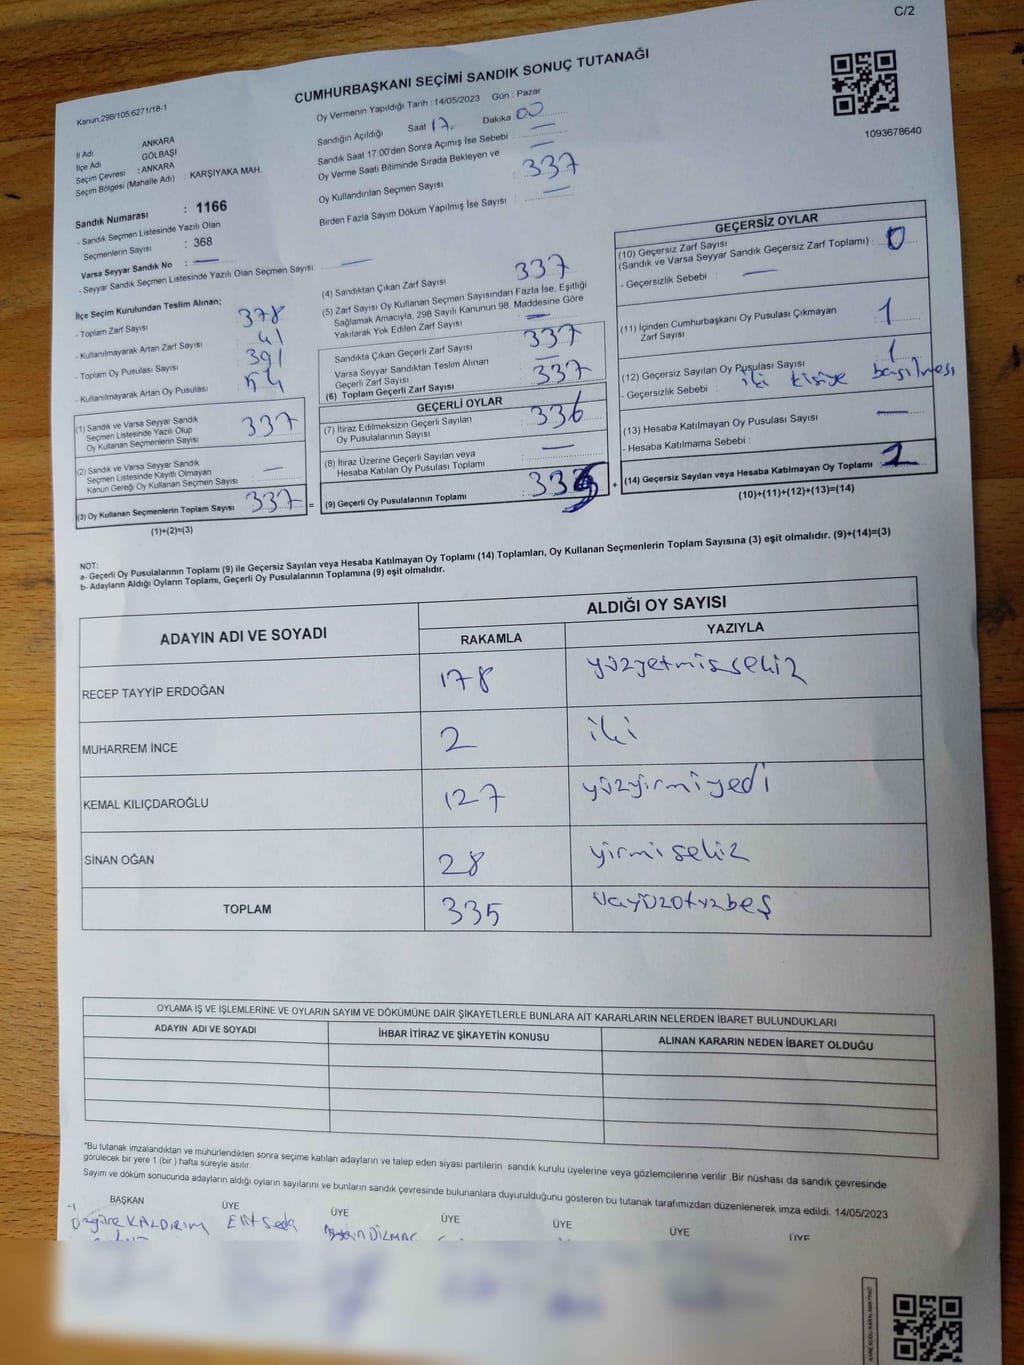 C/2
Kanun,298/105,6271/18-1
CUMHURBAŞKANI SEÇİMİ SANDIK SONUÇ TUTANAĞI
Oy Vermenin Yapıldığı Tarih : 14/05/2023 Gün : Pazar
1093678640
İl Adı : ANKARA
İlçe Adı : GÖLBAŞI
Seçim Çevresi : ANKARA
Seçim Bölgesi (Mahalle Adı) : KARŞIYAKA MAH.
Sandığın Açıldığı Saat 17. Dakika 00
Sandık Saat 17.00'den Sonra Açımış İse Sebebi : —
Oy Verme Saati Bitiminde Sırada Bekleyen ve : —
Oy Kullandırılan Seçmen Sayısı : 337
Birden Fazla Sayım Döküm Yapılmış İse Sayısı : —
Sandık Numarası : 1166
- Sandık Seçmen Listesinde Yazılı Olan
Seçmenlerin Sayısı : 368
Varsa Seyyar Sandık No : —
- Seyyar Sandık Seçmen Listesinde Yazılı Olan Seçmen Sayısı: —
İlçe Seçim Kurulundan Teslim Alınan;
- Toplam Zarf Sayısı 378
- Kullanılmayarak Artan Zarf Sayısı 41
- Toplam Oy Pusulası Sayısı 391
- Kullanılmayarak Artan Oy Pusulası 54
(1) Sandık ve Varsa Seyyar Sandık
Seçmen Listesinde Yazılı Olup
Oy Kullanan Seçmenlerin Sayısı : 337
(2) Sandık ve Varsa Seyyar Sandık
Seçmen Listesinde Kayıtlı Olmayan
Kanun Gereği Oy Kullanan Seçmen Sayısı : —
(3) Oy Kullanan Seçmenlerin Toplam Sayısı : 337
(1)+(2)=(3)
(4) Sandıktan Çıkan Zarf Sayısı : 337
(5) Zarf Sayısı Oy Kullanan Seçmen Sayısından Fazla İse, Eşitliği
Sağlamak Amacıyla, 298 Sayılı Kanunun 98. Maddesine Göre
Yakılarak Yok Edilen Zarf Sayısı : —
Sandıkta Çıkan Geçerli Zarf Sayısı : 337
Varsa Seyyar Sandıktan Teslim Alınan
Geçerli Zarf Sayısı : —
(6) Toplam Geçerli Zarf Sayısı : 337
GEÇERLİ OYLAR
(7) İtiraz Edilmeksizin Geçerli Sayılan
Oy Pusulalarının Sayısı : 336
(8) İtiraz Üzerine Geçerli Sayılan veya
Hesaba Katılan Oy Pusulası Toplamı : —
(9) Geçerli Oy Pusulalarının Toplamı : 335
=
+
GEÇERSİZ OYLAR
(10) Geçersiz Zarf Sayısı
(Sandık ve Varsa Seyyar Sandık Geçersiz Zarf Toplamı) : 0
- Geçersizlik Sebebi : —
(11) İçinden Cumhurbaşkanı Oy Pusulası Çıkmayan
Zarf Sayısı : 1
(12) Geçersiz Sayılan Oy Pusulası Sayısı : 1
- Geçersizlik Sebebi : iki kişiye basılması
(13) Hesaba Katılmayan Oy Pusulası Sayısı : —
- Hesaba Katılmama Sebebi :
(14) Geçersiz Sayılan veya Hesaba Katılmayan Oy Toplamı : 2
(10)+(11)+(12)+(13)=(14)
NOT:
a- Geçerli Oy Pusulalarının Toplamı (9) ile Geçersiz Sayılan veya Hesaba Katılmayan Oy Toplamı (14) Toplamları, Oy Kullanan Seçmenlerin Toplam Sayısına (3) eşit olmalıdır. (9)+(14)=(3)
b- Adayların Aldığı Oyların Toplamı, Geçerli Oy Pusulalarının Toplamına (9) eşit olmalıdır.
ADAYIN ADI VE SOYADI
ALDIĞI OY SAYISI
RAKAMLA YAZIYLA
RECEP TAYYİP ERDOĞAN 178 yüzyetmişsekiz
MUHARREM İNCE 2 iki
KEMAL KILIÇDAROĞLU 127 yüzyirmiyedi
SİNAN OĞAN 28 yirmisekiz
TOPLAM 335 üçyüzotuzbeş
OYLAMA İŞ VE İŞLEMLERİNE VE OYLARIN SAYIM VE DÖKÜMÜNE DAİR ŞİKAYETLERLE BUNLARA AİT KARARLARIN NELERDEN İBARET BULUNDUKLARI
ADAYIN ADI VE SOYADI İHBAR İTİRAZ VE ŞİKAYETİN KONUSU ALINAN KARARIN NEDEN İBARET OLDUĞU
*Bu tutanak imzalandıktan ve mühürlendikten sonra seçime katılan adayların ve talep eden siyasi partilerin sandık kurulu üyelerine veya gözlemcilerine verilir .Bir nüshası da sandık çevresinde
görülecek bir yere 1 (bir ) hafta süreyle asılır.
Sayım ve döküm sonucunda adayların aldığı oyların sayılarını ve bunların sandık çevresinde bulunanlara duyurulduğunu gösteren bu tutanak tarafımızdan düzenlenerek imza edildi. 14/05/2023
BAŞKAN ÜYE ÜYE ÜYE ÜYE ÜYE ÜYE
KALDIRIM Elif Seda DİZMAN